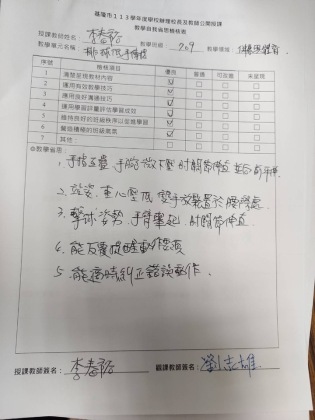 基隆市113學年度學校辦理校長及教師公開授課
教學自我省思檢核表
授課教師姓名：李春裕 教學班級：709 教學領域：健康與體育
教學單元名稱：排球低手傳球
序號 檢核項目 優良 普通 可改進 未呈現
1 清楚呈現教材內容
2 運用有效教學技巧
3 應用良好溝通技巧
4 運用學習評量評估學習成效
5 維持良好的班級秩序以促進學習
6 營造積極的班級氣氛
7 其他：
※教學省思：
1. 手指互疊，手腕微下壓，肘關節伸直
2. 預備姿 重心壓低 雙手放置於腰際處
3. 擊球姿勢，手臂 肘關節伸直
4. 能反覆提醒動作要領
5. 能適時糾正錯誤動作。
授課教師簽名：李春裕 觀課教師簽名：劉志雄